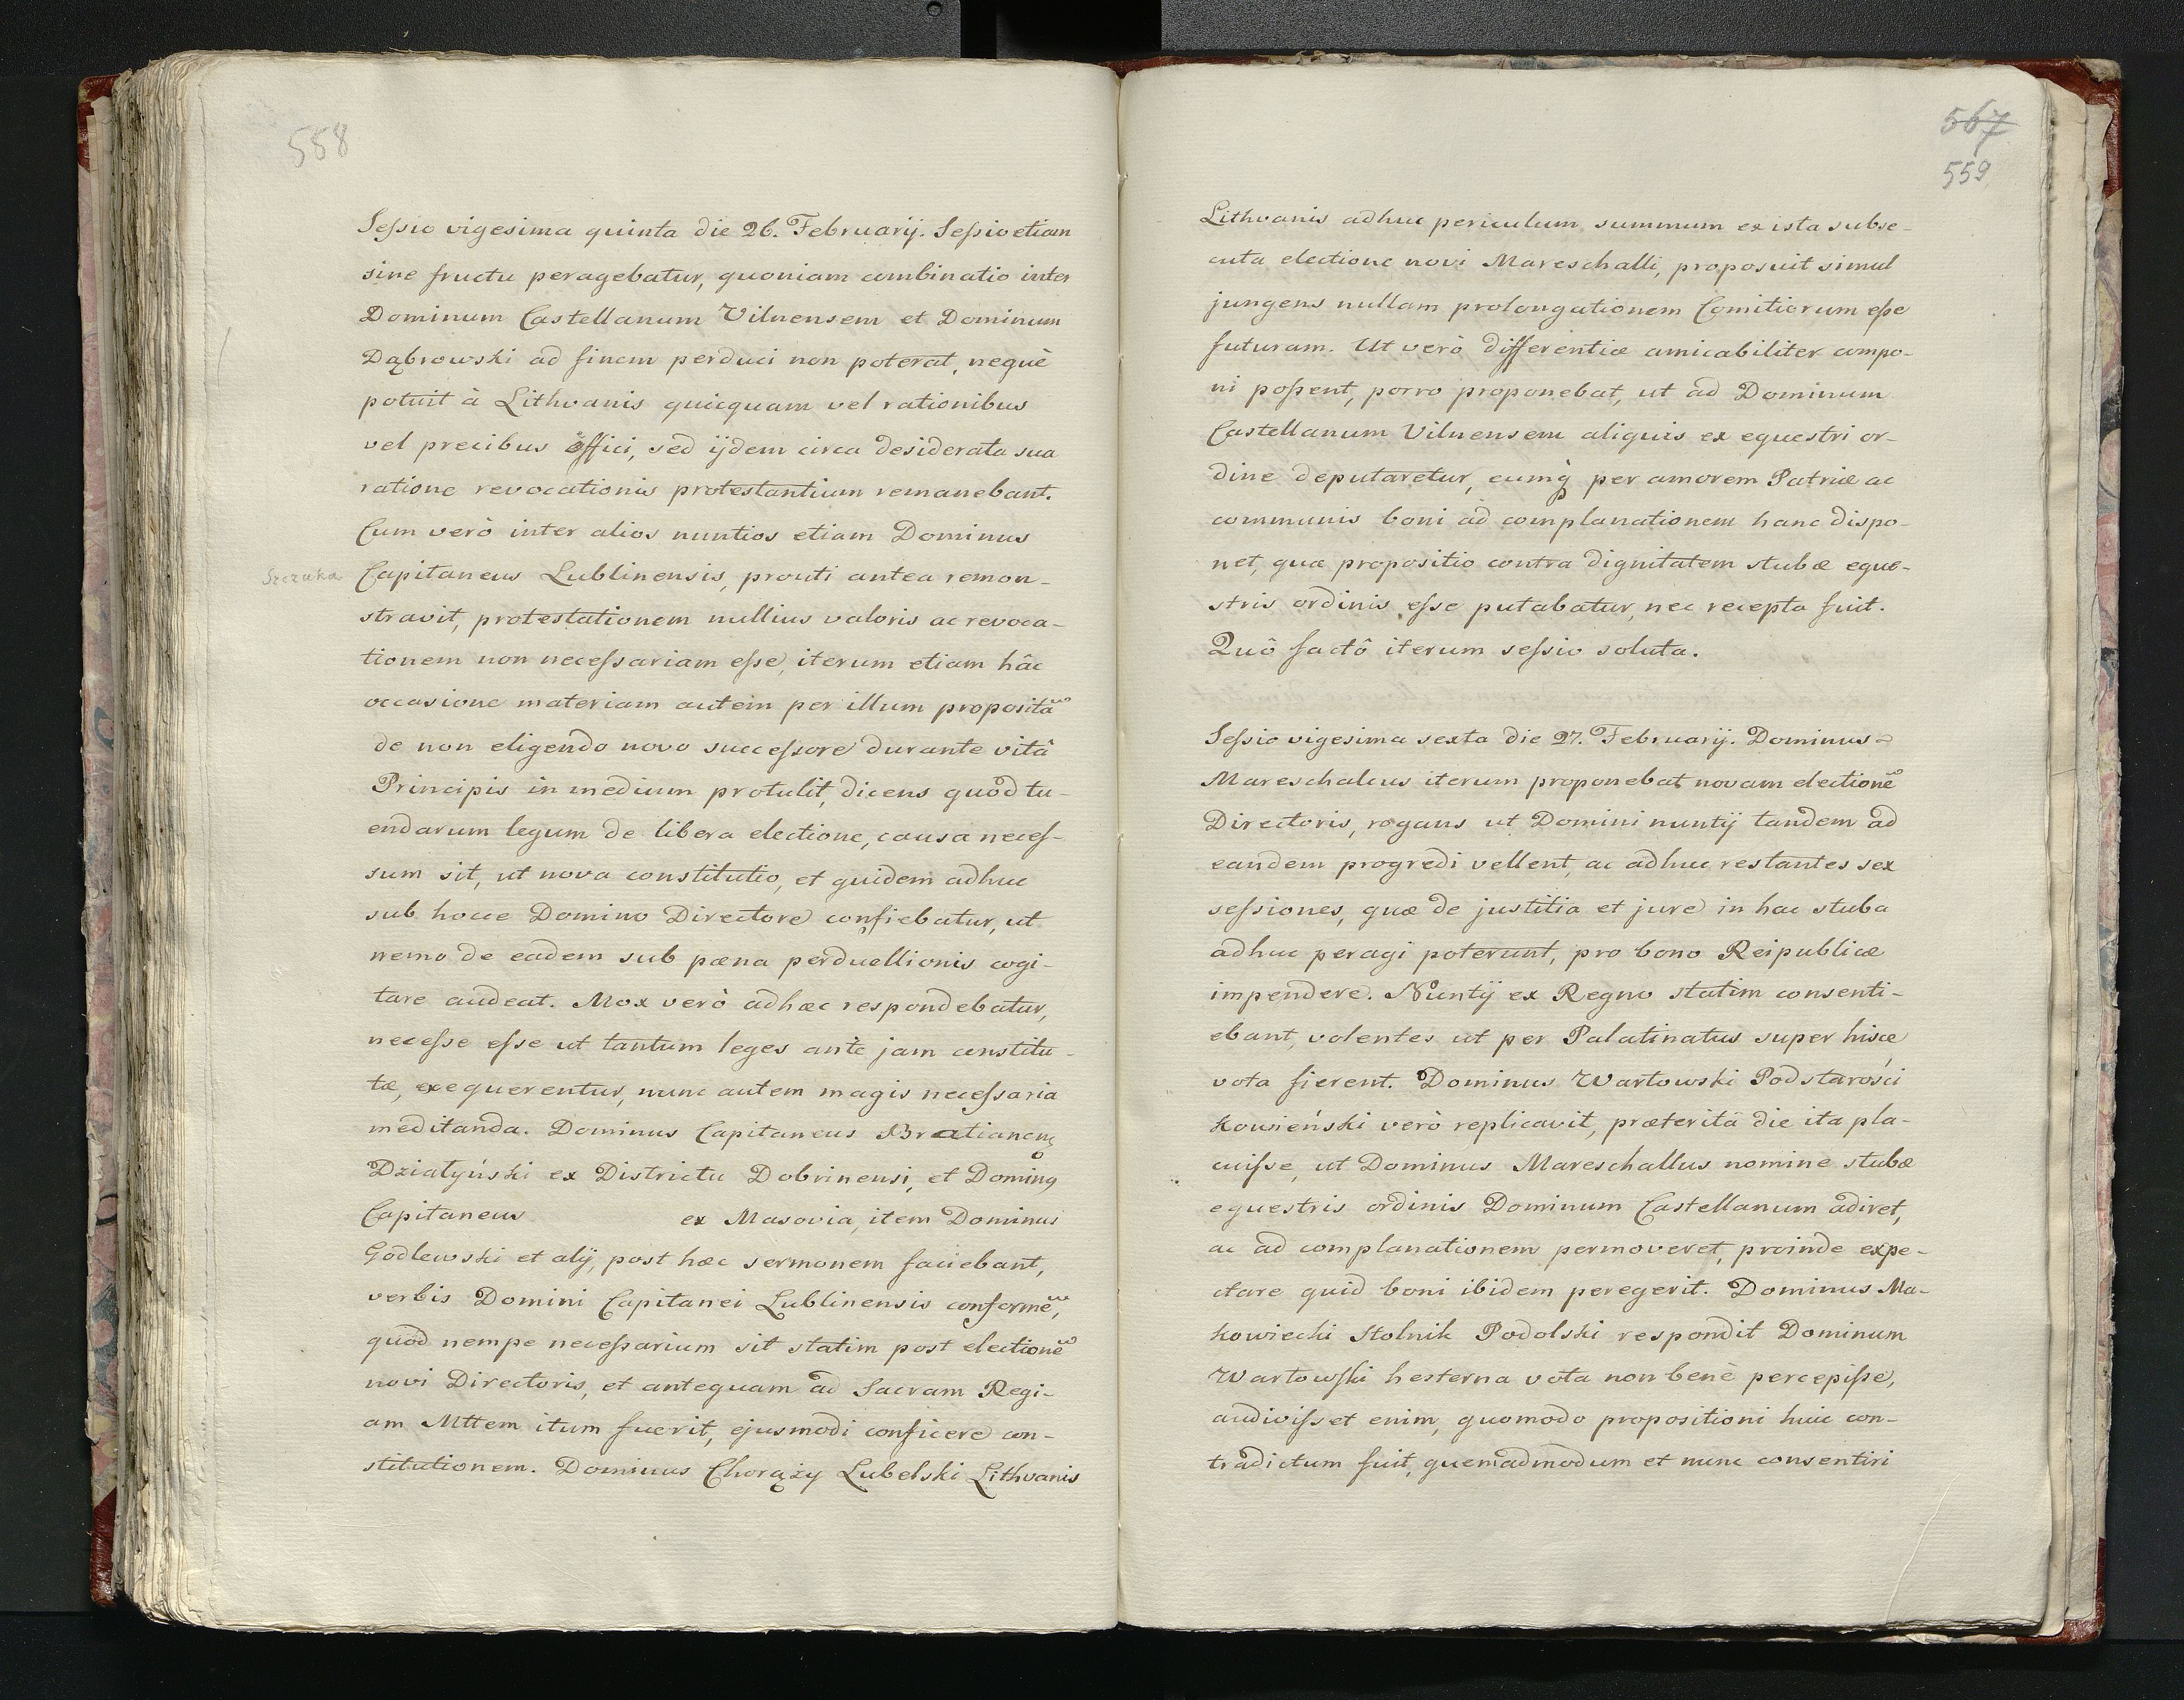 558
Sessio vigesima quinta die 26. Februarij. Sessio etiam
sine fructu peragebatur, quoniam combinatio inter
Dominum Castellanum Vilnensem et Dominum
Dąbrowski ad finem perduci non poterat, nequè
potuit à Lithvanis quicquam vel rationibus
vel precibus effici, sed ijdem circa desiderata sua
ratione revocationis protestantium remanebant.
Cum verò inter alios nuntios etiam Dominus
Szczuka
Capitaneus Lublinensis, prouti antea remon-
stravit, protestationem nullius valoris ac revoca-
tionem non necessariam esse, iterum etiam hâc
occasione materiam autem per illum propositã
de non eligendo novo successore durante vitâ
Principis in medium protulit, dicens quòd tu-
endarum legum de libera electione, causa neces-
sum sit, ut nova constitutio, et quidem adhuc
sub hocce Domino Directore conficebatur, ut
nemo de eadem sub pœna perduellionis cogi-
tare audeat. Mox verò adhæc respondebatur,
necesse esse ut tantum leges antè jam constitu-
tæ, exequerentur, nunc autem magis necessaria
meditanda. Dominus Capitaneus Bratianens
Działyński ex Districtu Dobrinensi, et Dominus
Capitaneus ex Masovia, item Dominus
Godlewski et alij, post hæc sermonem faciebant,
verbis Domini Capitanei Lublinensis conformẽ,
quòd nempe necessarium sit statim post electionẽ
novi Directoris, et antequam ad Sacram Regi-
am Mttem itum fuerit, ejusmodi conficere con-
stitutionem. Dominus Chorąży Lubelski Lithvanis
567
559
Lithvanis adhuc periculum summum ex ista subse-
cuta electione novi Mareschalli, proposuit simul
jungens nullam prolongationem Comitiorum esse
futuram. Ut verò differentiæ amicabiliter compo-
ni possent, porro proponebat, ut ad Dominum
Castellanum Vilnensem aliquis ex equestri or-
dine deputaretur, eumq̀ per amorem Patriæ ac
communis boni ad complanationem hanc dispo-
net, quæ propositio contra dignitatem stubæ eque-
stris ordinis esse putabatur, nec recepta fuit.
Quô factô iterum sessio soluta.
Sessio vigesima sexta die 27. Februarij. Dominus
Mareschalcus iterum proponebat novam electionẽ
Directoris, rogans ut Domini nuntij tandem ad
eandem progredi vellent, ac adhuc restantes sex
sessiones, quæ de justitia et jure in hac stuba
adhuc peragi poterunt, pro bono Reipublicæ
impendere. Nuntij ex Regno statim consenti-
ebant, volentes ut per Palatinatus super hisce
vota fierent. Dominus Wartowski Podstarości
Kowieński verò replicavit, præteritâ die ita pla-
cuisse, ut Dominus Mareschallus nomine stubæ
equestris ordinis Dominum Castellanum adiret,
ac ad complanationem permoveret, proinde expe-
ctare quid boni ibidem peregerit. Dominus Ma-
kowiecki Stolnik Podolski respondit Dominum
Wartowski hesterna vota non benè percepisse,
audivisset enim, quomodo propositioni huic con-
tradictum fuit, quemadmodum et nunc consentiri